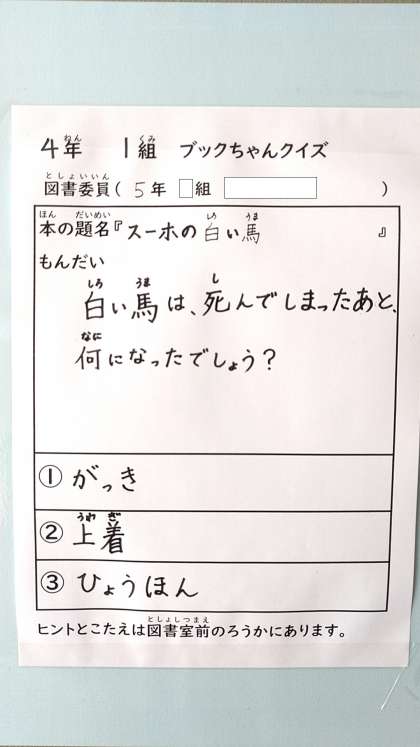 4年 1組 ブックちゃんクイズ
図書委員( 5年 組 )
本の題名『スーホの白い馬 』
もんだい
白い馬は、死んでしまったあと、
何になったでしょう?
① がっき
② 上着
③ ひょうほん
ヒントとこたえは図書室前のろうかにあります。